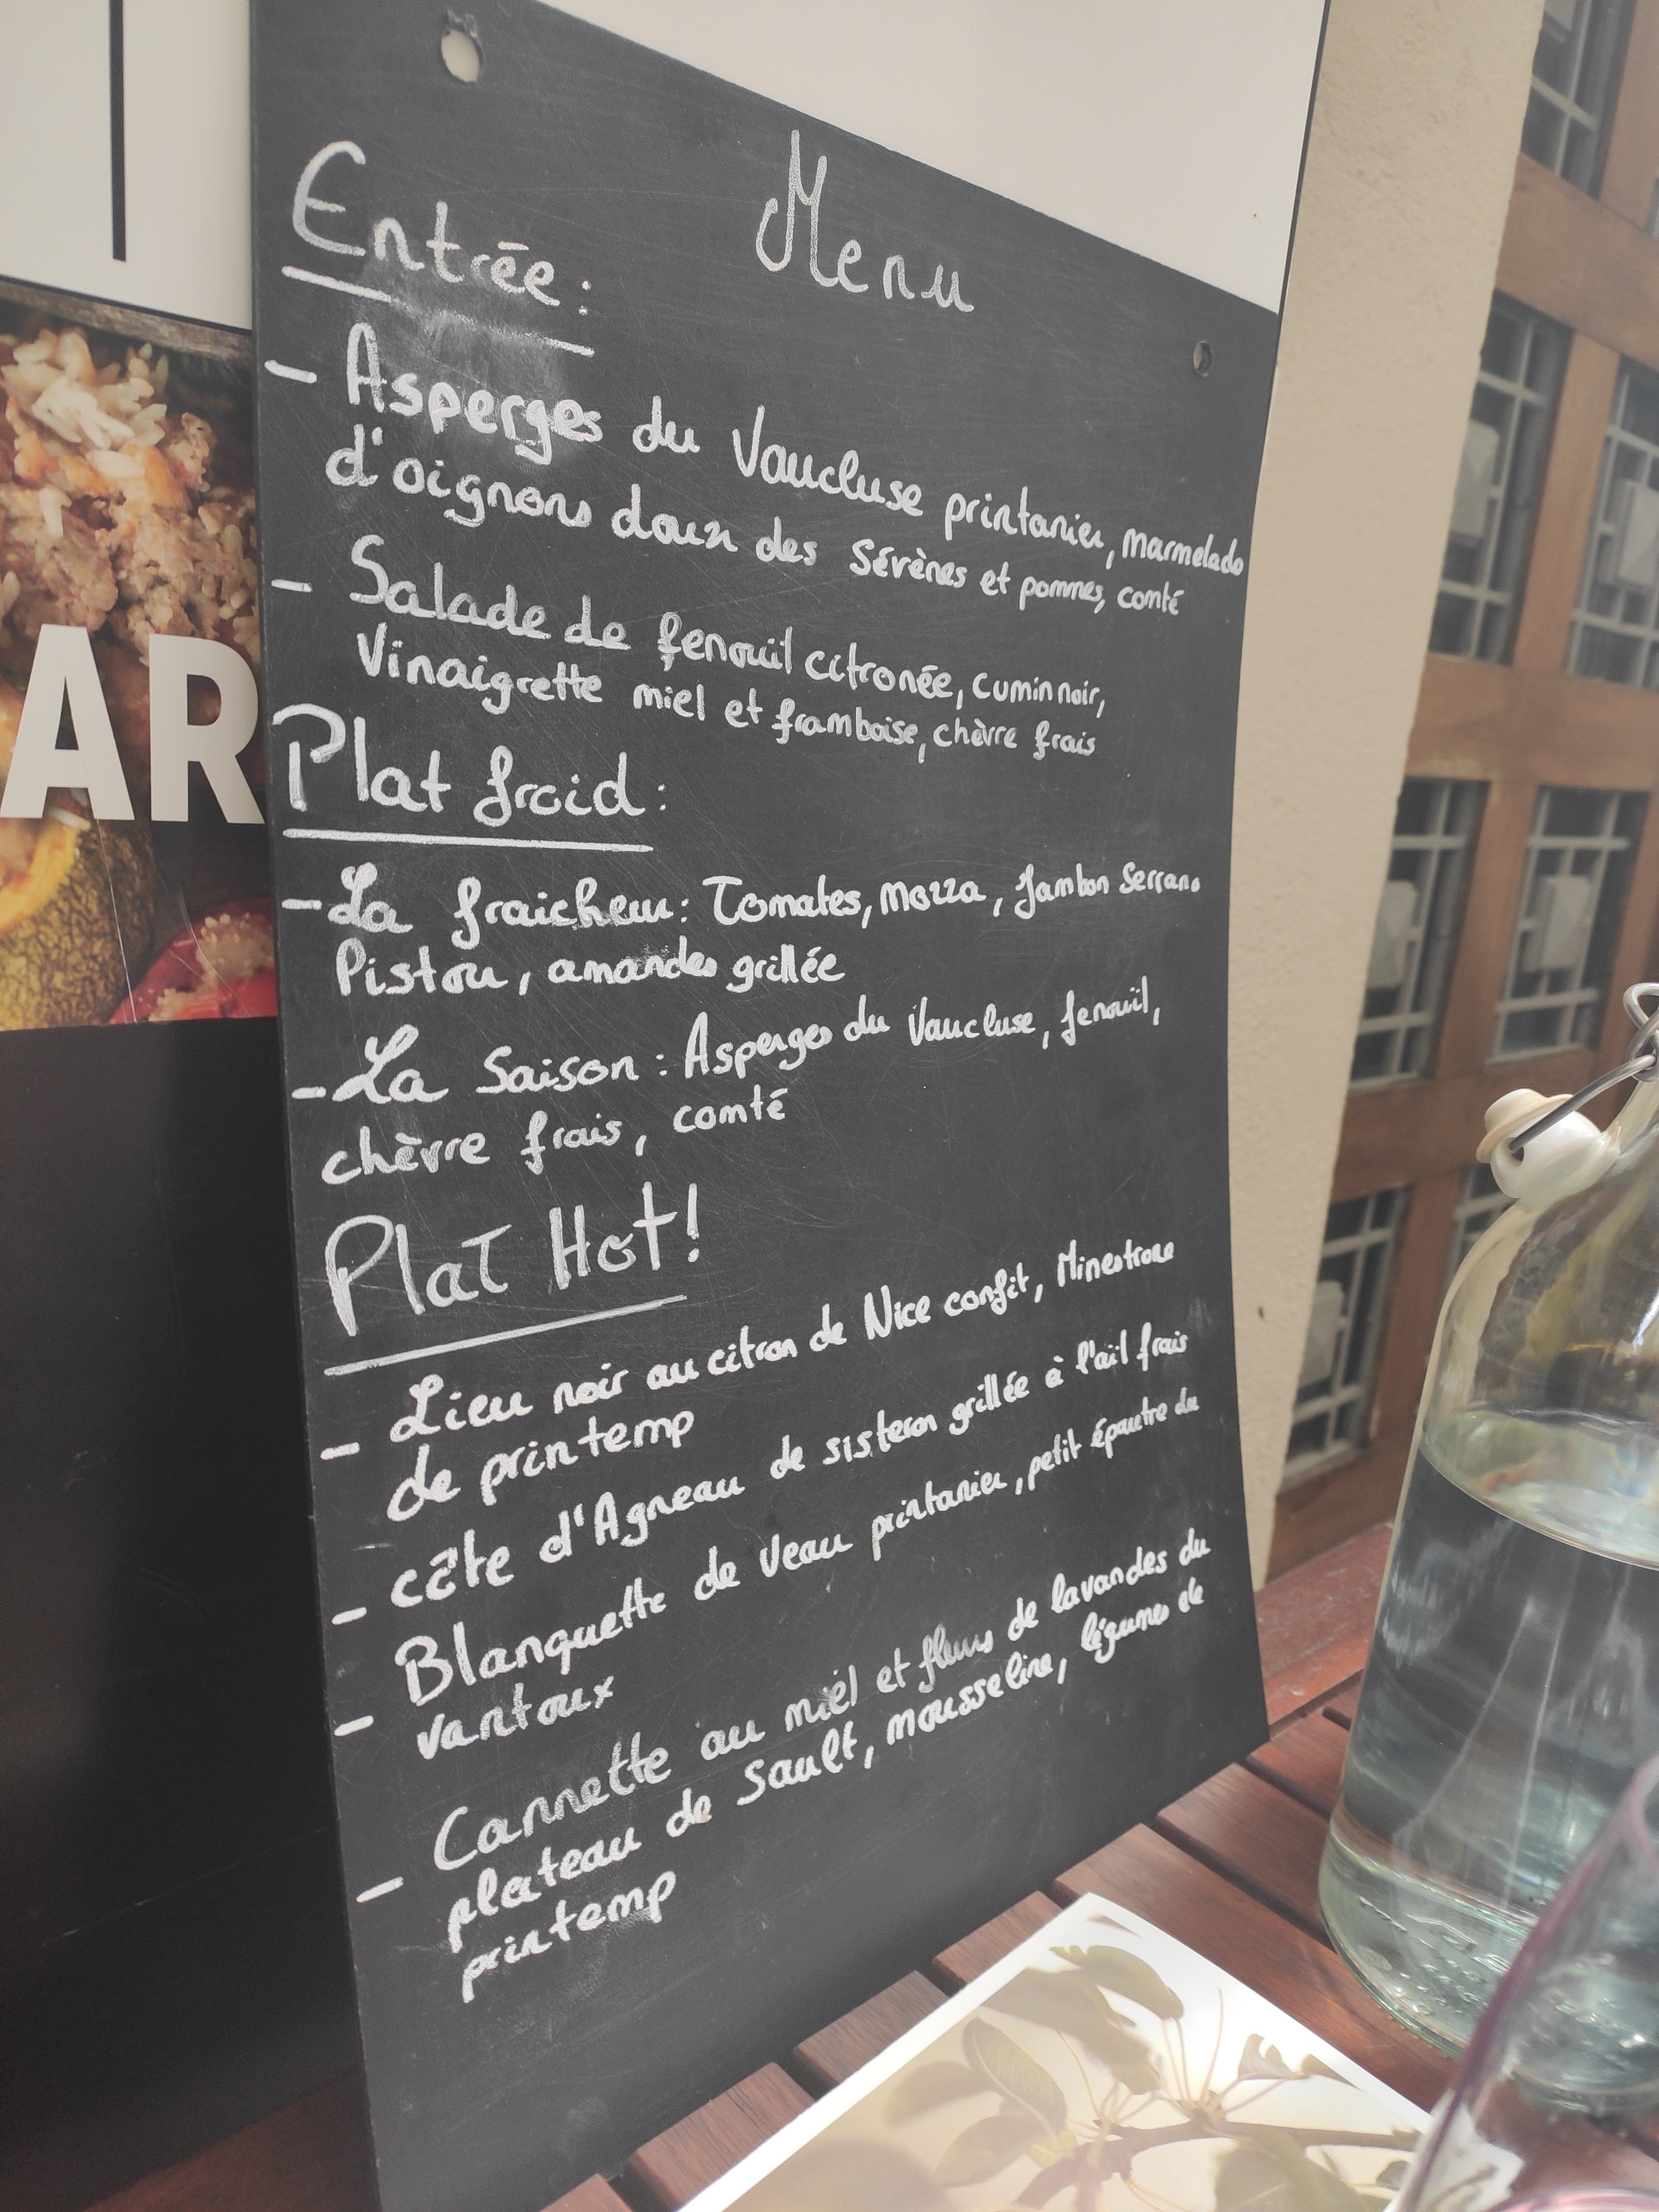 Menu
Entrée :
- Asperges du Vaucluse printanier, marmelade
d'oignons doux des Sévènes et pommes, comté
- Salade de fenouïl citronée, cumin noir,
Vinaigrette miel et framboise, chèvre frais
Plat froid :
- La fraicheur : Tomates, mozza, Jambon Serrano
Pistou, amandes grillée
- La Saison : Asperges du Vaucluse, fenouïl,
chèvre frais, comté
Plat Hot !
- Lieu noir au citron de Nice confit, Minestrone
de printemp
- côte d'Agneau de sisteron grillée à l'ail frais
- Blanquette de veau printanier, petit épautre du
vantoux
- Cannette au miel et fleurs de lavandes du
plateau de Sault, mousseline, légumes de
printemp
AR